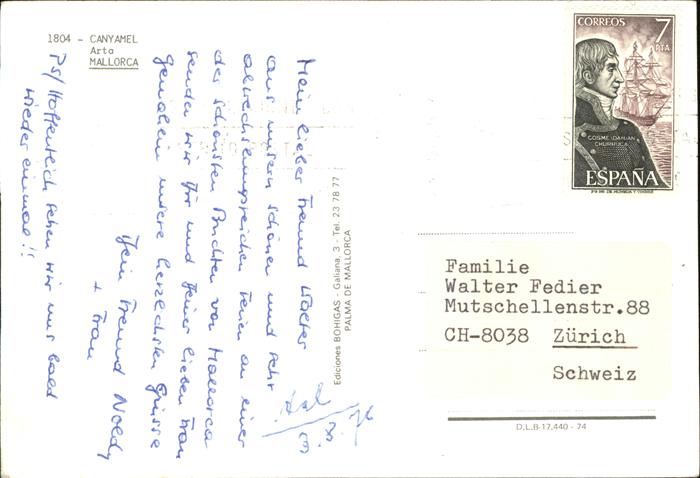 1804 - CANYAMEL
Arta
MALLORCA
Mein lieber Freund Walter
Aus unsern schönen und sehr
abwechslungsreichen Ferien an einer
der schönsten Buchten von Mallorca
senden wir Dir und Deiner lieben Frau
Gemahlin unsere herzlichsten Grüsse
Dein Freund Noldy
+ Frau
PS/ Hoffentlich sehen wir uns bald
wieder einmal!!
Ediciones BOHIGAS - Galiana, 3 - Tel. 23 78 77
PALMA DE MALLORCA
CORREOS 7 PTA
COSME DAMIAN
CHURRUCA
ESPAÑA
Familie
Walter Fedier
Mutschellenstr.88
CH-8038 Zürich
Schweiz
D.L.B-17.440 - 74